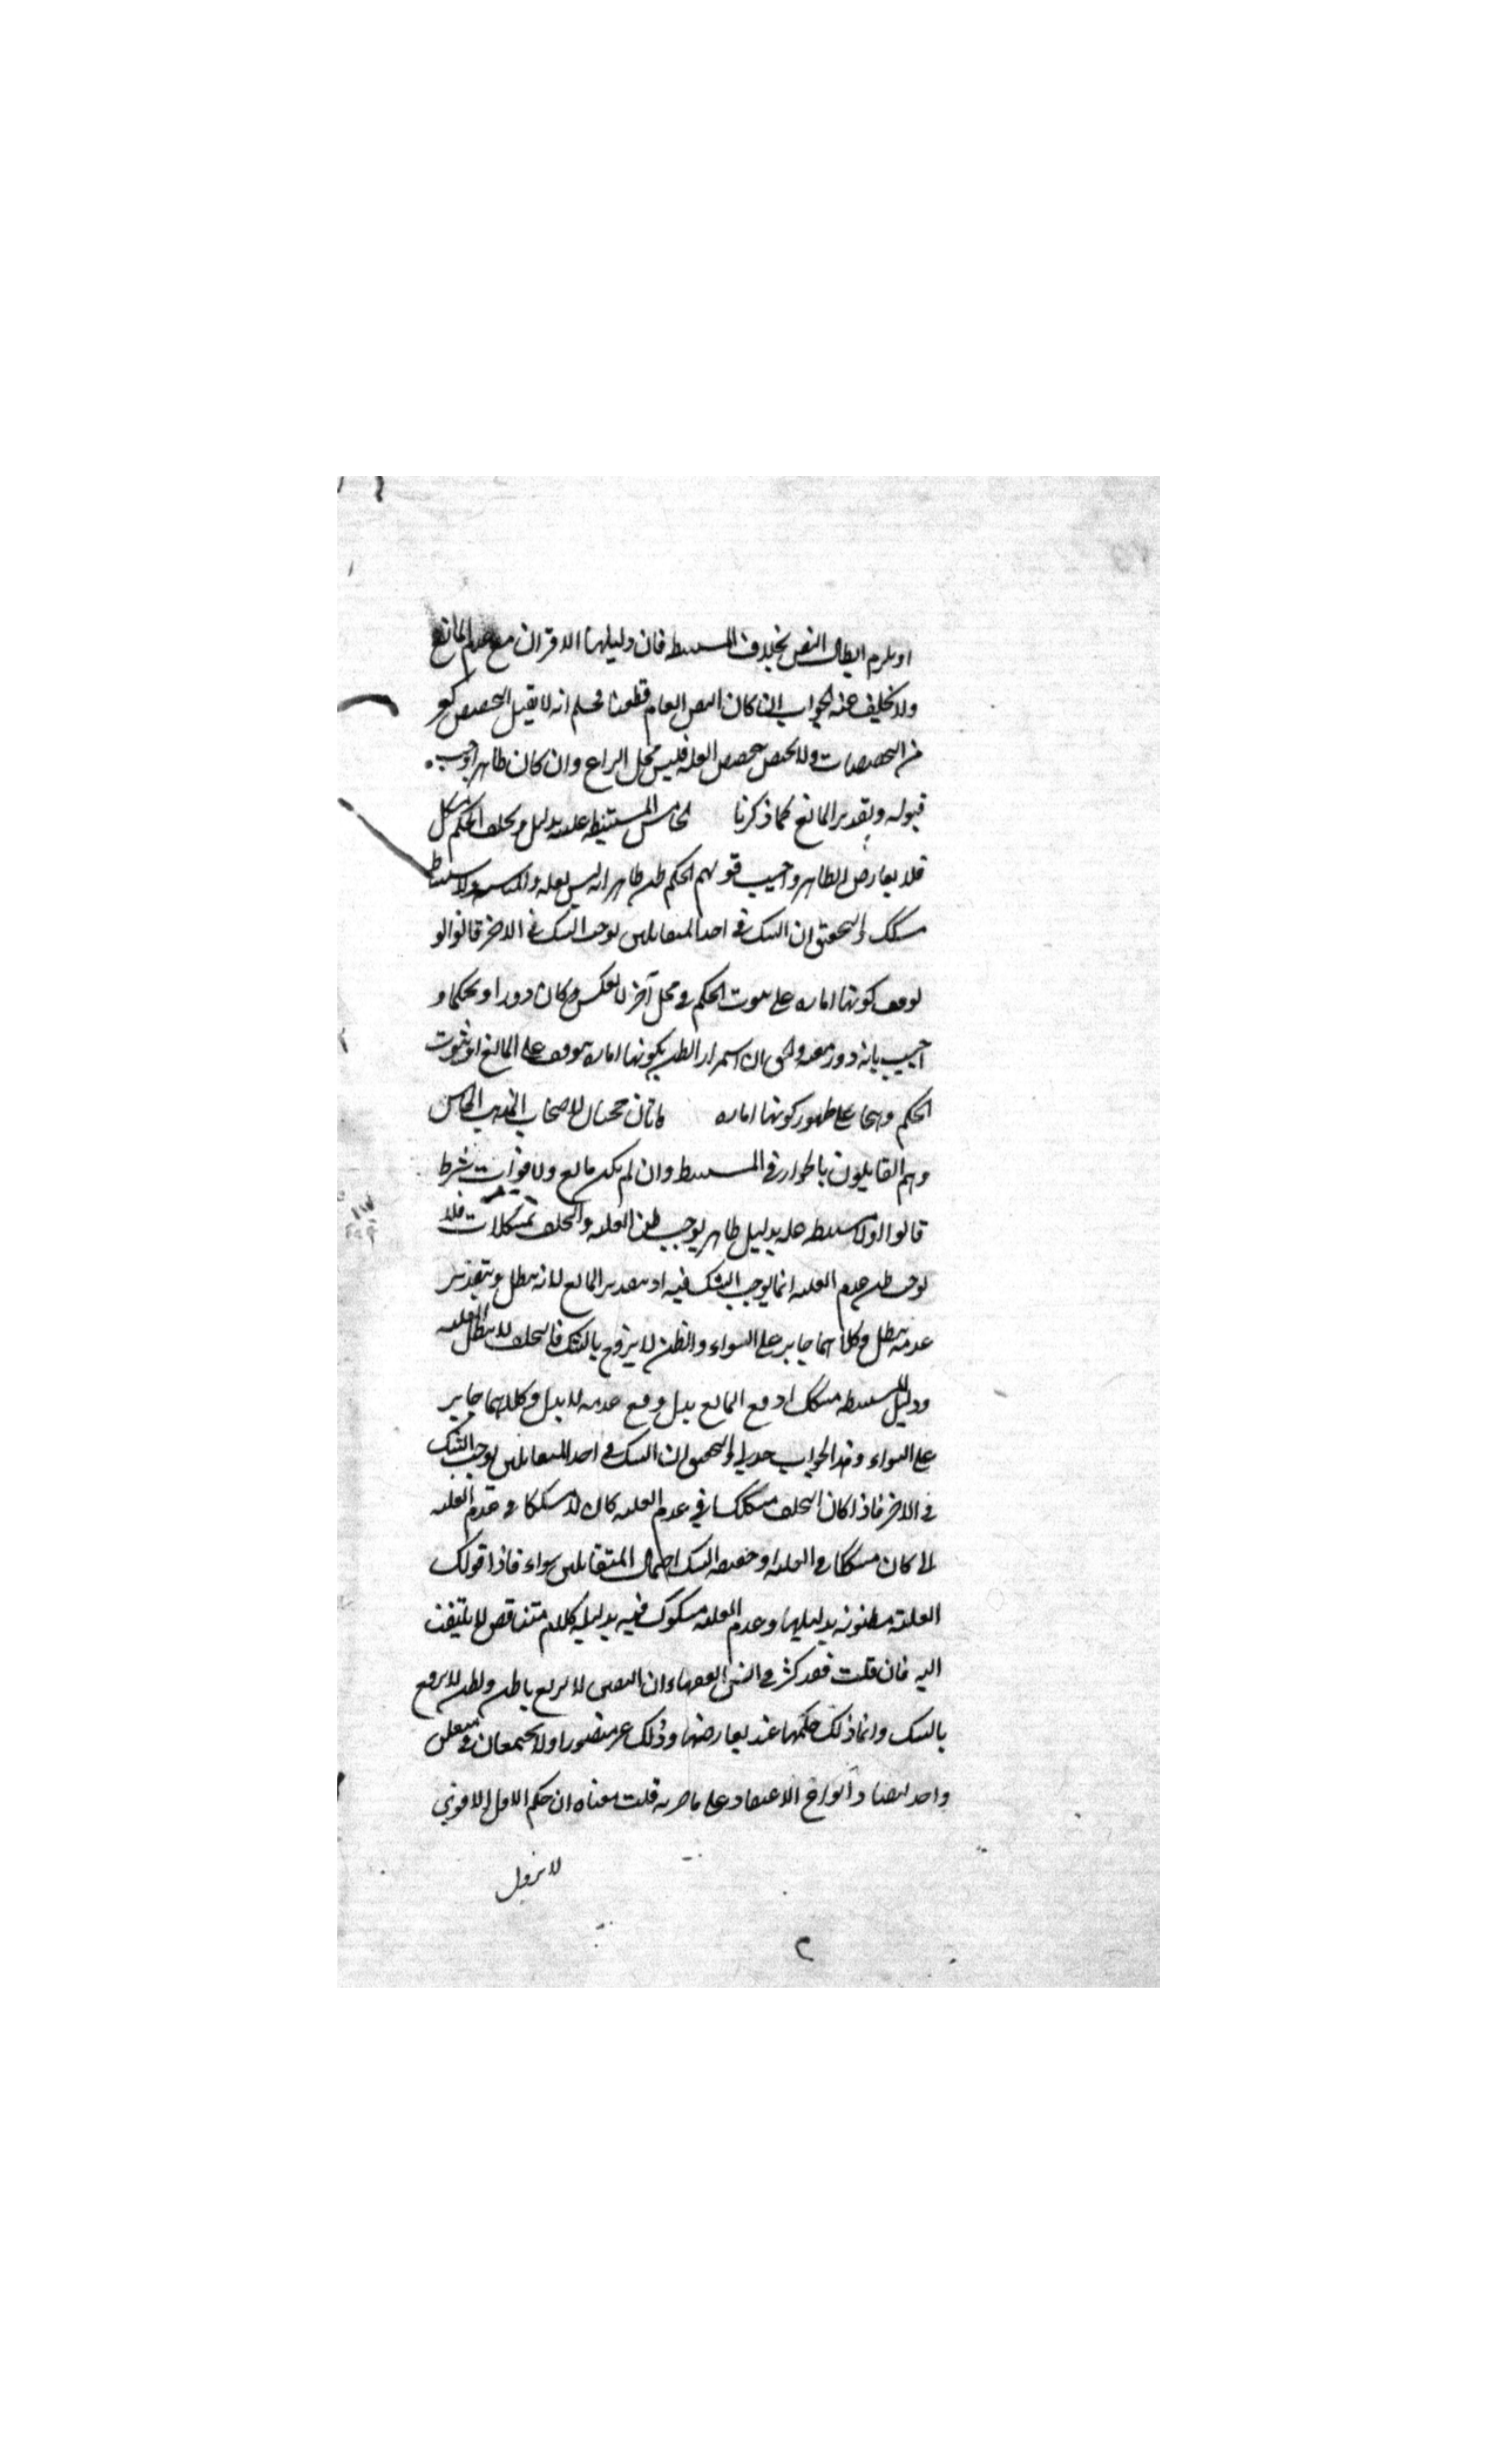 او يلزم ابطال النص بخلاف المستنبطه فان دليلها الاقتران مع عدم المانع
ولا تخلف عنه الجواب ان كان النص العام قطعيا فمسلم انه لا يقبل التخصيص كغيره
من التخصيصات ولا يختص بتخصيص العله فليس محل النزاع وان كان ظاهرا وجب
قبوله وتقدير المانع كما ذكرنا الخامس المستنبطه عله بدليل وتخلف الحكم مشكل
فلا يعارض الظاهر واجيب تخلف الحكم ظاهر انه ليس بعله والاستنباط
مشكك والتحقيق ان الشك في احد المتقابلين يوجب الشك في الاخر قالوا لو
توقف كونها اماره على ثبوت الحكم في محل آخر لانعكس وكان دورا او تحكما و
اجيب بانه دور معيه والحق ان استمرار الظن بكونها اماره يتوقف على المانع او ثبوت
الحكم وهما على ظهور كونها اماره هاتان حجتان لاصحاب المذهب الخامس
وهم القايلون بالجواز في المستنبطه وان لم يكن مانع ولا فوات شرط
قالوا اولا المستنبطه عله بدليل ظاهر يوجب ظن العليه والتخلف مشكك فلا
يوجب ظن عدم العليه انما يوجب الشك فيه اذ بتقدير المانع لا يبطل وبتقدير
عدمه يبطل وكلاهما جايز على السواء والظن لا يرفع بالشك فالتخلف لا يبطل العليه
ودليل المستنبطه مشكك اذ مع المانع يدل ومع عدمه لا يدل وكلاهما جايز
على السواء وهذا الجواب جدلي والتحقيق ان الشك في احد المتقابلين يوجب الشك
في الاخر فاذا كان التخلف مشككا في عدم العليه كان مشككا في عدم العليه
كان مشككا في العليه اذ حقيقه الشك احتمال المتقابلين سواء فاذا قولك
العليه مظنونه بدليلها وعدم العليه مشكوك فيه بدليله كلام متناقض لا يلتفت
اليه فان قلت فقد كثر في السن الفقهاء ان اليقين لا يرفع بالظن والظن لا يرفع
بالشك وانما ذلك حكمها عند تعارضها وذلك غير متصور اذ لا يجتمعان في متعلق
واحد لتضاد انواع الاعتقاد على ما صرح به قلت معناه ان حكم الاول الاقوى
لا يزول
٢